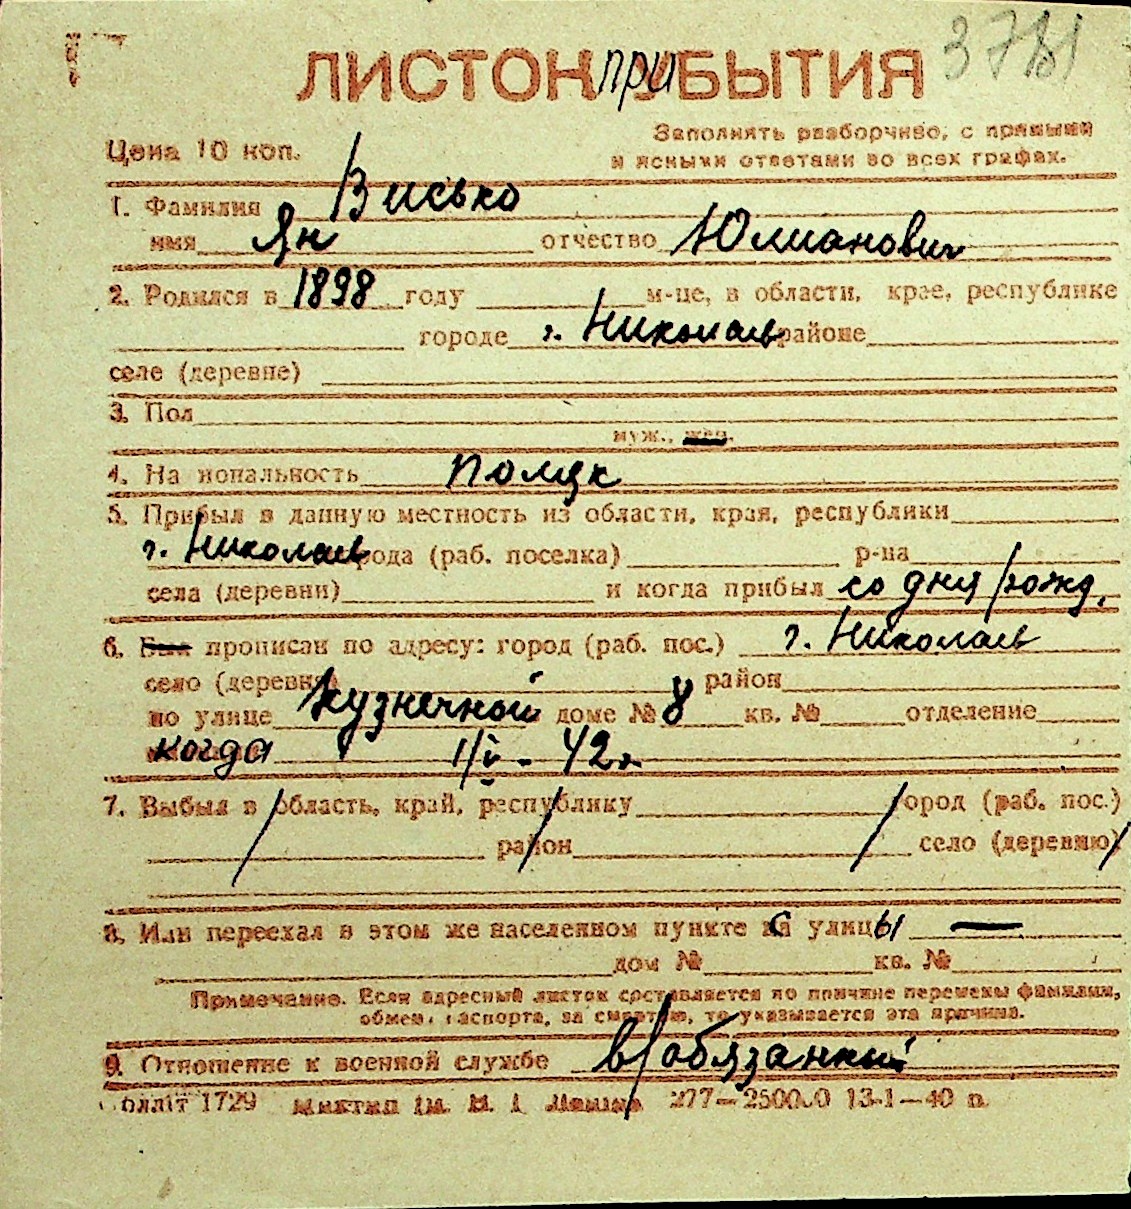 3781
ЛИСТОК при УБЫТИЯ
Цена 10 коп.
Заполнять разборчиво, с прямыми
и ясными ответами во всех графах.
1. Фамилия Висько
имя Ян отчество Юлианович
2. Родился в 1898 году м-це, в области, крае, республике
городе г. Николаев районе
селе (деревне)
3. Пол
муж., жен.
4. На иональность поляк
5. Прибыл в данную местность из области, края, республики
г. Николаев рода (раб. поселка) р-на
села (деревни) и когда прибыл со дня рожд.
6. Был прописан по адресу: город (раб. пос.) г. Николаев
село (деревня) район
по улице Кузнечной доме № 8 кв. № отделение
когда 1/V - 42 г.
7. Выбыл в область, край, республику город (раб. пос.)
район село (деревню)
8. Или переехал в этом же населенном пункте с улицы —
дом № кв. №
Примечание. Если адресный листок составляется по причине перемены фамилии,
обмен паспорта, за смертью, то указывается эта причина.
9. Отношение к военной службе в/обязанный
1729 им. В. І. Леніна 277—25000 13-1—40 п.